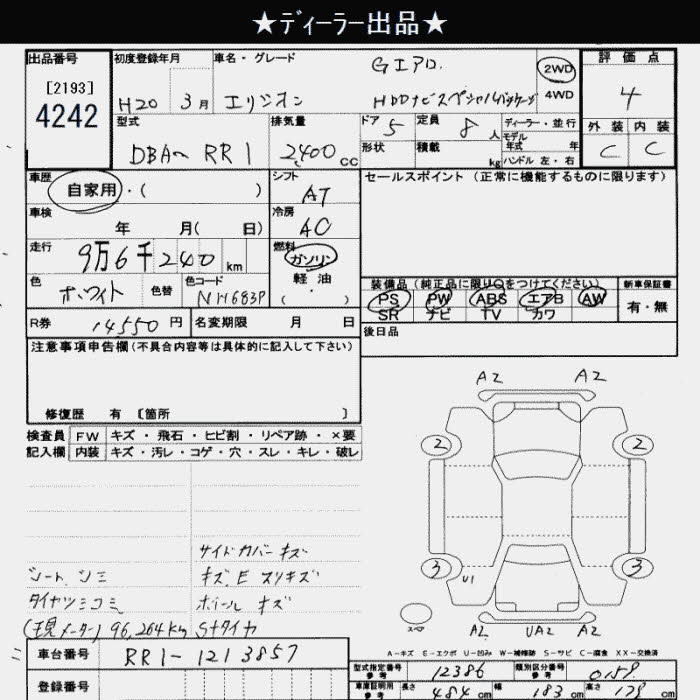 ★ディーラー出品★
出品番号 初度登録年月 車名・グレード Gエアロ. 2WD 評価点
[2193] H20 3月 エリシオン HDDナビスペシャルパッケージ 4WD 4
4242 型式 排気量 ドア 5 定員 8人 ディーラー・並行 外装 内装
DBA- RR1 2,400cc 形状 積載 kg モデル年式 年 C C
ハンドル 左・右
車歴 シフト セールスポイント(正常に機能するものに限ります)
自家用・( ) AT
車検 冷房
年 月( 日) AC
走行 燃料
9万6千240km ガソリン
色 色替 色コード 軽油 装備品(純正品に限り○をつけてください) 新車保証書
ホワイト NH683P (・) PS PW ABS エアB AW 有・無
SR ナビ TV カワ
R券 14550円 名変期限 月 日 後日品
注意事項申告欄(不具合内容等は具体的に記入して下さい)
A2 A2
修復歴 有 〔箇所 〕
検査員 FW キズ・飛石・ヒビ割・リペア跡・×要 2 2
記入欄 内装 キズ・汚レ・コゲ・穴・スレ・キレ・破レ
サイドカバーキズ
シート シミ キズ.E スリキズ 3 U1 3
タイヤツミコミ ホイール キズ
(現メーター)96,264km Sタイヤ A2 UA2 A2
A-キズ E-エクボ U-凹み W-補修跡 S-サビ C-腐食 XX-交換済
車台番号 RR1-1213857 型式指定番号 参考 12386 類別区分番号 参考 0159
登録番号 車庫証明用 参考 長さ 484cm 幅 183cm 高さ 179cm